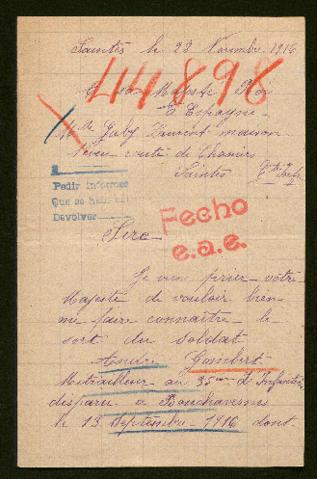 Saintes le 22 Novembre 1916
441896
A sa Majesté Roi
d'Espagne
Mlle Gaby Laurent maison
route de Chaniers
Saintes
Pedir informes
Que se
Devolver
Fecho
e.a.e.
Sire
Je viens prier votre
Majesté de vouloir bien
me faire connaître le
sort du soldat
André Gombert
Mitrailleur au 35em d'Infanterie
disparu à Bouchavesnes
le 13 Septembre 1916 dont